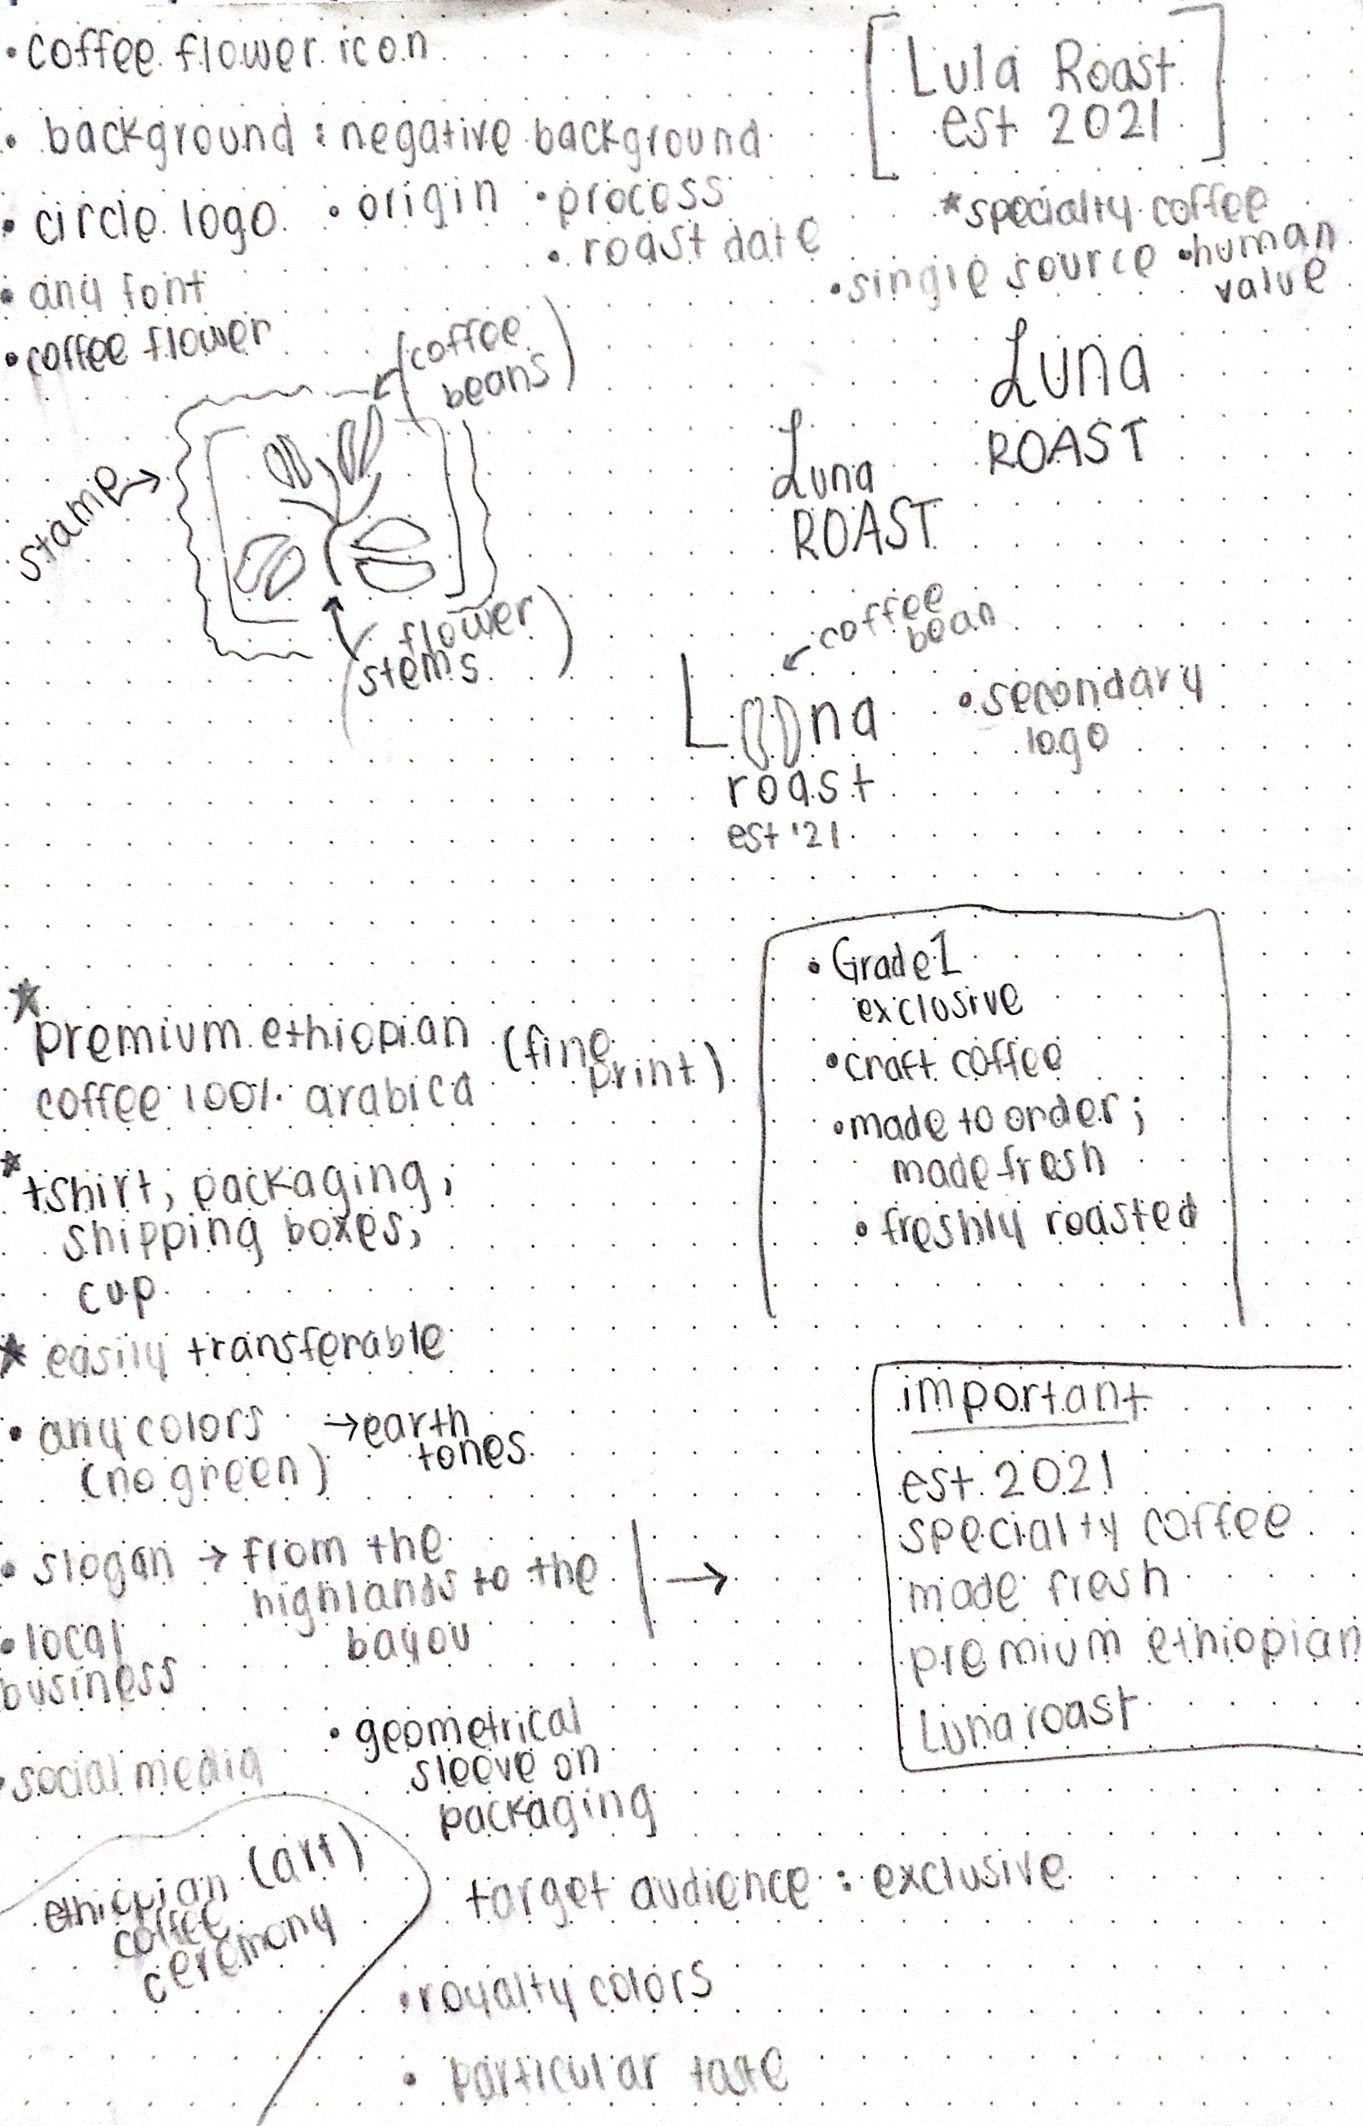 • coffee flower icon
[Lula Roast
est 2021]
• background : negative background
• circle logo • origin • process
• roast date
*specialty coffee
• single source • human
value
• any font
• coffee flower
(coffee
beans)
stamp →
(flower
stems)
Luna
ROAST
Luna
ROAST
coffee
bean
Luna
roast
est '21
• secondary
logo
★
premium ethiopian (fine
print)
coffee 100% arabica
• Grade 1
exclusive
• craft coffee
• made to order;
made fresh
• freshly roasted
* tshirt, packaging,
shipping boxes,
cup
★ easily transferable
• any colors → earth
tones
(no green)
• slogan → from the
highlands to the
bayou
→
important
est. 2021
specialty coffee
made fresh
premium ethiopian
Luna roast
• local
business
• social media
• geometrical
sleeve on
packaging
ethiopian (art)
coffee
ceremony
target audience : exclusive
• royalty colors
• particular taste